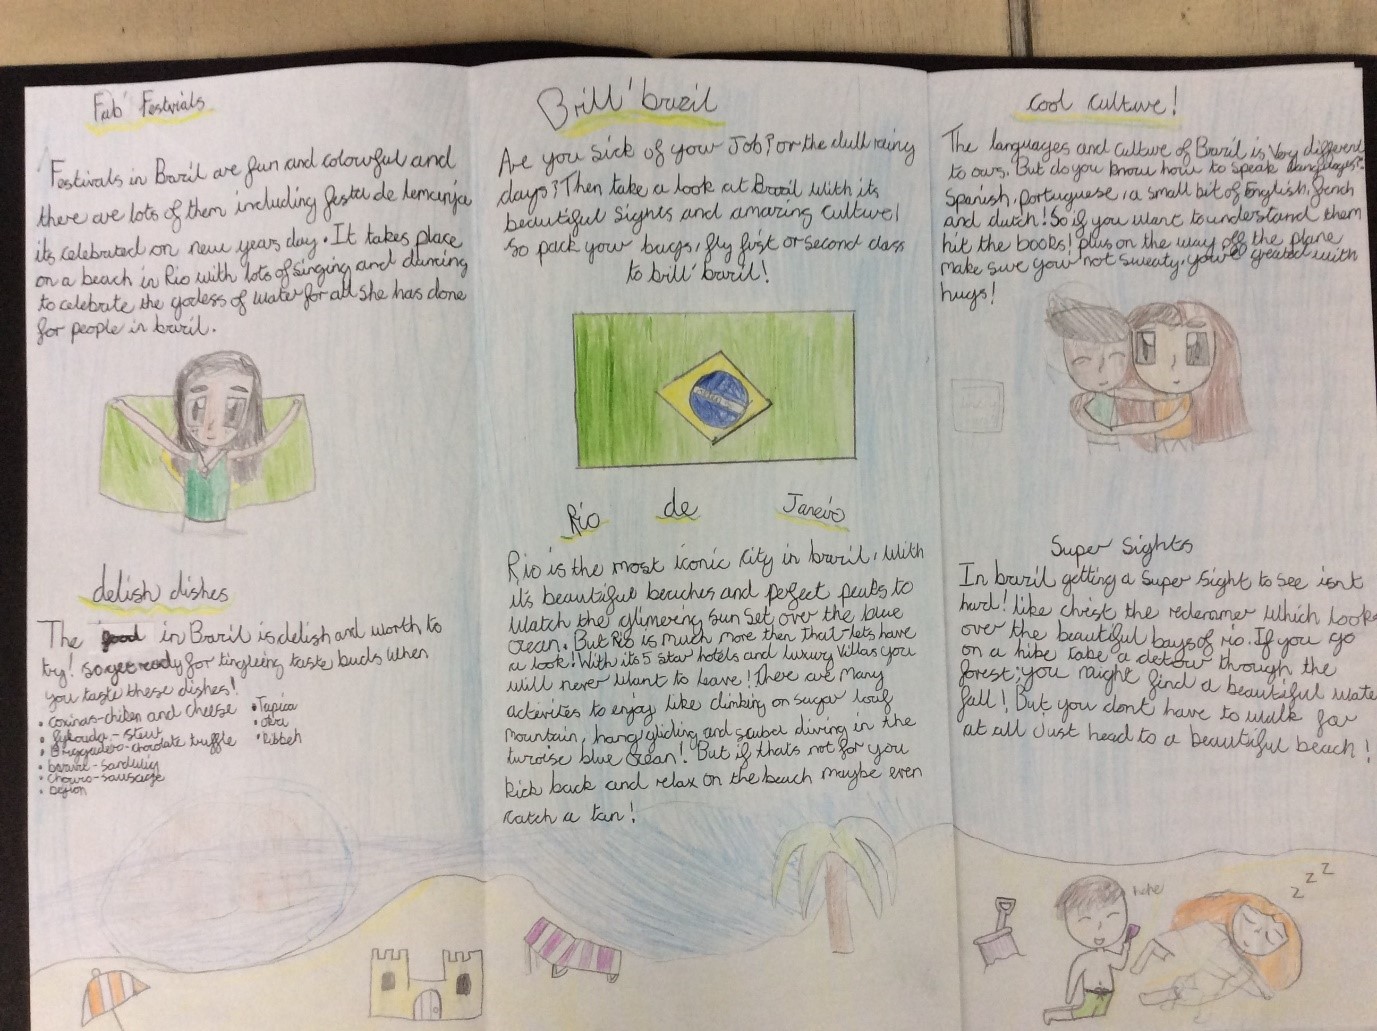 Fab' Festivials
Festivals in Brazil are fun and colourful and
there are lots of them including festa de lemanja
its celebrated on new years day. It takes place
on a beach in Rio with lots of singing and dancing
to celebrate the godess of water for all she has done
for people in brazil.
delish dishes
The food in Brazil is delish and worth to
try! so get ready for tingleing taste buds when
you taste these dishes!
• coxinas-chiken and cheese
• - stew
• Briggadero-chocolate truffle
• bauru - sandwig
• Chouro-sausage
•
• Tapica
• okra
• Kibbeh
Brill' brazil
Are you sick of your Job? or the dull rainy
days? Then take a look at Brazil with its
beautiful sights and amazing culture!
so pack your bags, fly first or second class
to brill' brazil!
Rio de Janeiro
Rio is the most iconic city in brazil, with
it's beautiful beaches and perfect peaks to
watch the glimering sun set, over the blue
ocean. But Rio is much more then that-lets have
a look! With its 5 star hotels and luxury villas you
will never want to leave! there are many
activites to enjoy like climbing on sugar loaf
mountain, hang gliding and scuba diving in the
turoise blue ocean! But if thats not for you
kick back and relax on the beach maybe even
catch a tan!
Cool culture!
The languages and culture of Brazil is very different
to ours. But do you know how to speak languages?-
Spanish, portuguese, a small bit of English, french
and dutch! So if you want to understand them
hit the books! plus on the way off the plane
make sure your not sweaty, your greated with
hugs!
Super Sights
In brazil getting a super sight to see isnt
hard! like christ the redemmer which looks
over the beautiful bays of rio. If you go
on a hike take a detour through the
forest; you might find a beautiful wate
fall! But you dont have to walk far
at all Just head to a beautiful beach!
hehe
z z z